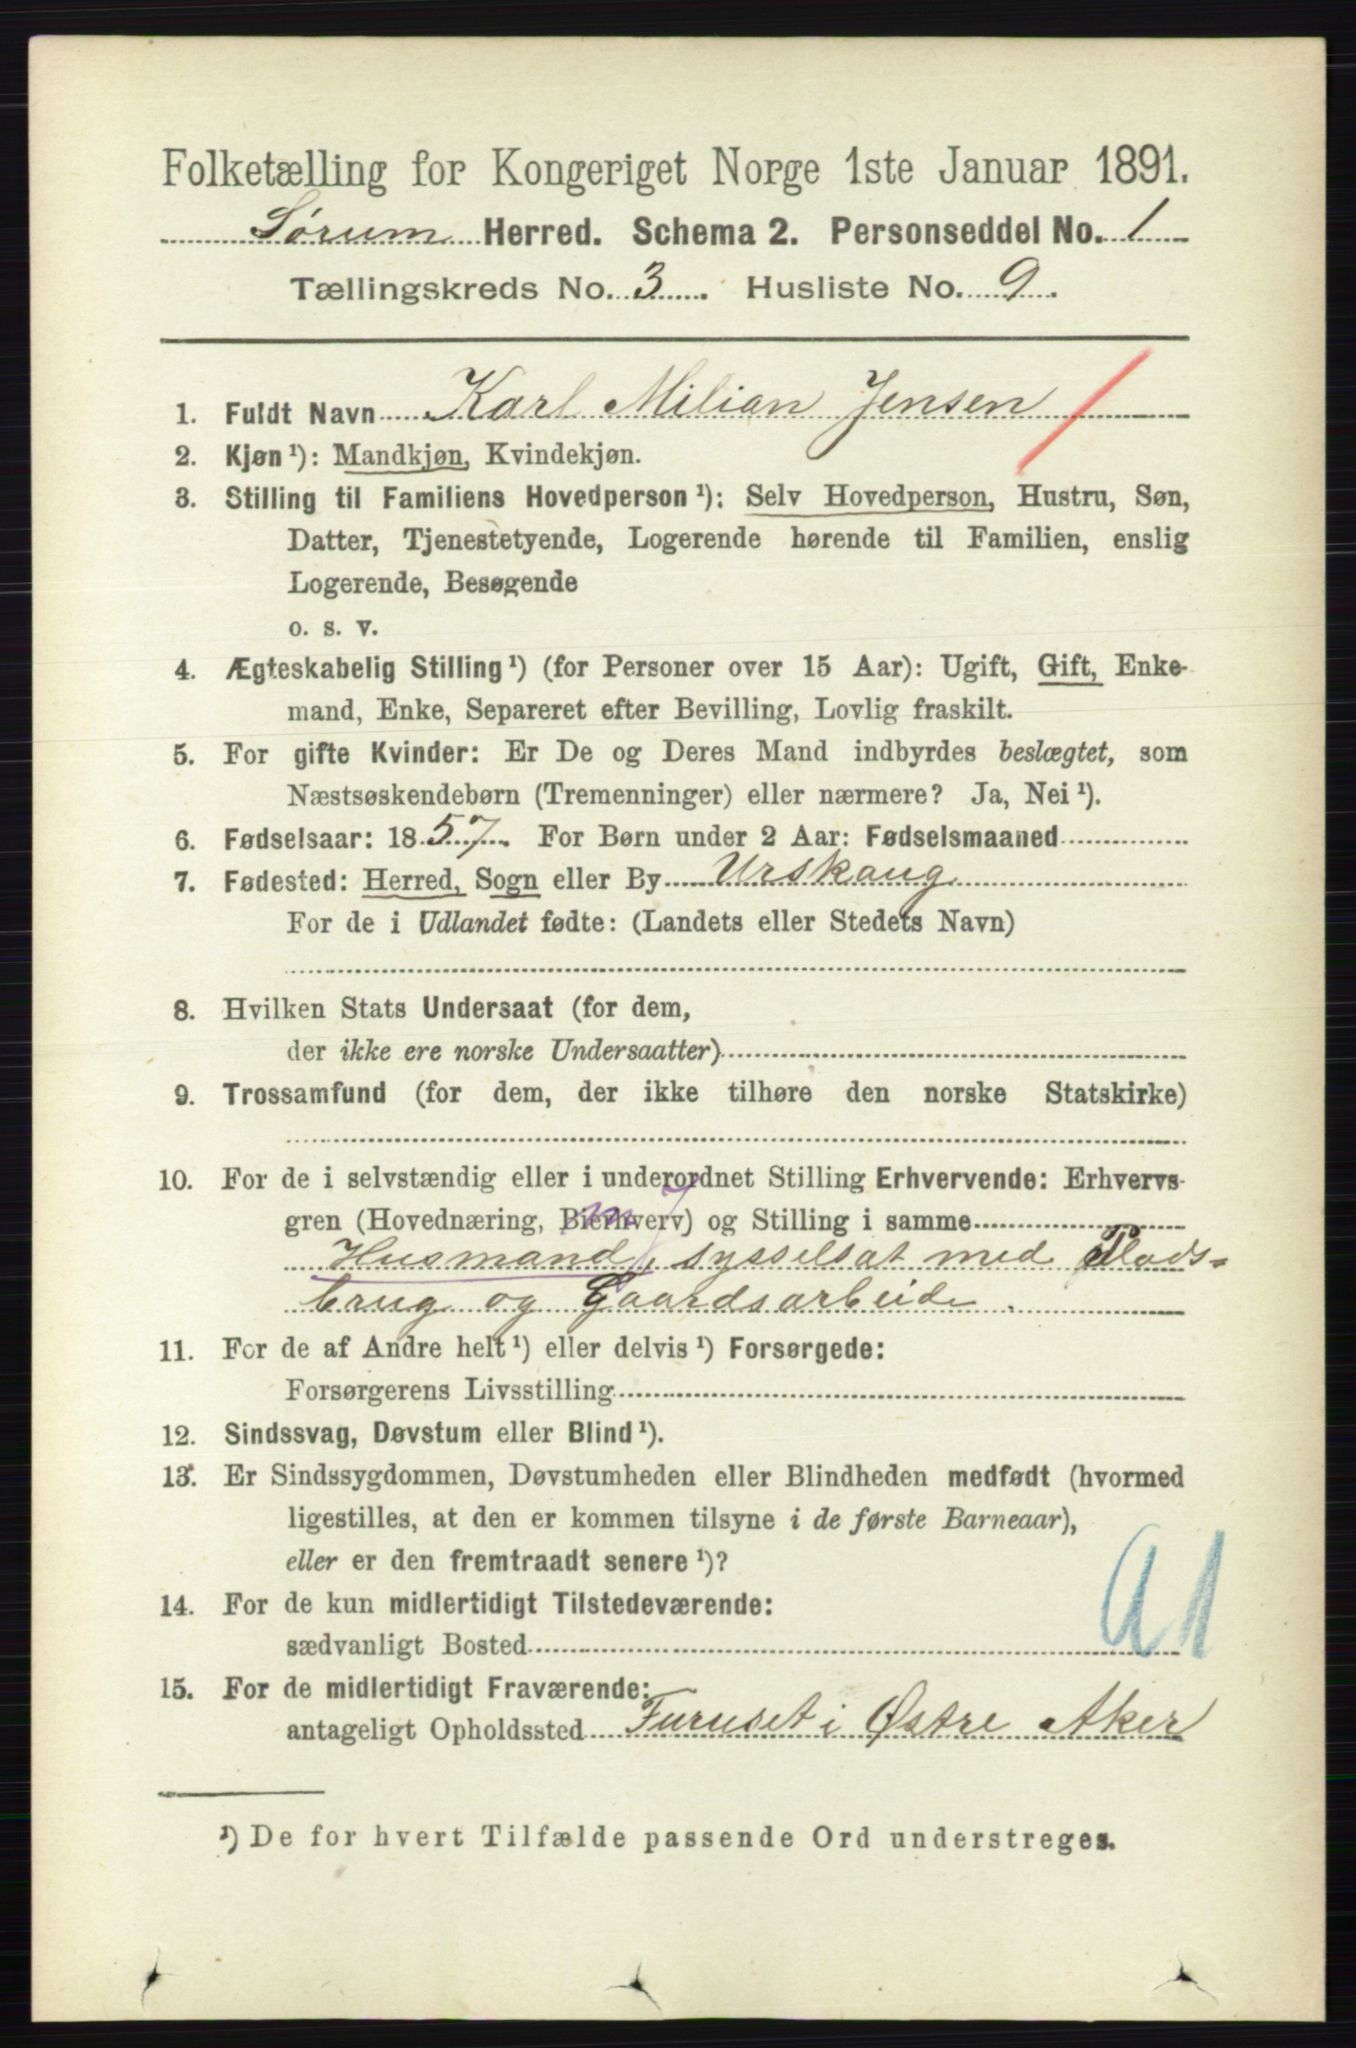 Folketælling for Kongeriget Norge 1ste Januar 1891.
Sørum Herred. Schema 2. Personseddel No. 1
Tællingskreds No. 3. Husliste No. 9.
1. Fuldt Navn Karl Milian Jensen
2. Kjøn ¹): Mandkjøn, Kvindekjøn.
3. Stilling til Familiens Hovedperson ¹): Selv Hovedperson, Hustru, Søn,
Datter, Tjenestetyende, Logerende hørende til Familien, enslig
Logerende, Besøgende
o. s. v.
4. Ægteskabelig Stilling ¹) (for Personer over 15 Aar): Ugift, Gift, Enke-
mand, Enke, Separeret efter Bevilling, Lovlig fraskilt.
5. For gifte Kvinder: Er De og Deres Mand indbyrdes beslægtet, som
Næstsøskendebørn (Tremenninger) eller nærmere? Ja, Nei ¹).
6. Fødselsaar: 1857. For Børn under 2 Aar: Fødselsmaaned
7. Fødested: Herred, Sogn eller By Urskoug
For de i Udlandet fødte: (Landets eller Stedets Navn)
8. Hvilken Stats Undersaat (for dem,
der ikke ere norske Undersaatter)
9. Trossamfund (for dem, der ikke tilhøre den norske Statskirke)
10. For de i selvstændig eller i underordnet Stilling Erhvervende: Erhvervs-
gren (Hovednæring, Bierhverv) og Stilling i samme
Husmand, sysselsat med Plads-
brug og Gaardsarbeide.
11. For de af Andre helt ¹) eller delvis ¹) Forsørgede:
Forsørgerens Livsstilling
12. Sindssvag, Døvstum eller Blind ¹).
13. Er Sindssygdommen, Døvstumheden eller Blindheden medfødt (hvormed
ligestilles, at den er kommen tilsyne i de første Barneaar),
eller er den fremtraadt senere ¹)?
14. For de kun midlertidigt Tilstedeværende:
sædvanligt Bosted
15. For de midlertidigt Fraværende:
antageligt Opholdssted Furuset i Østre Aker
¹) De for hvert Tilfælde passende Ord understreges.